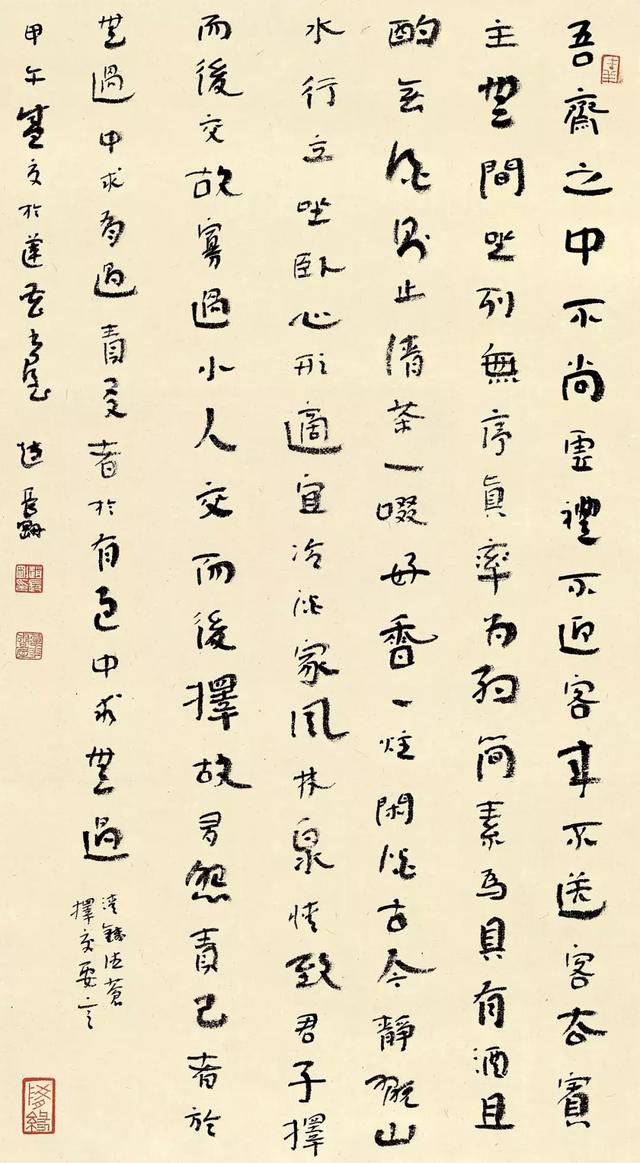 吾齋之中不尚虛禮不迎客來不送客去賓
主無間坐列無序真率為約簡素為具有酒且
酌無酒則止清茶一啜好香一炷閑談古今靜翫山
水行立坐臥心形適宜冷淡家風林泉情致君子擇
而後交故寡過小人交而後擇故多怨責己者於
無過中求有過責人者於有過中求無過
清錢德蒼
擇交要言
甲午盛夏於蓮花書屋 趙長剛